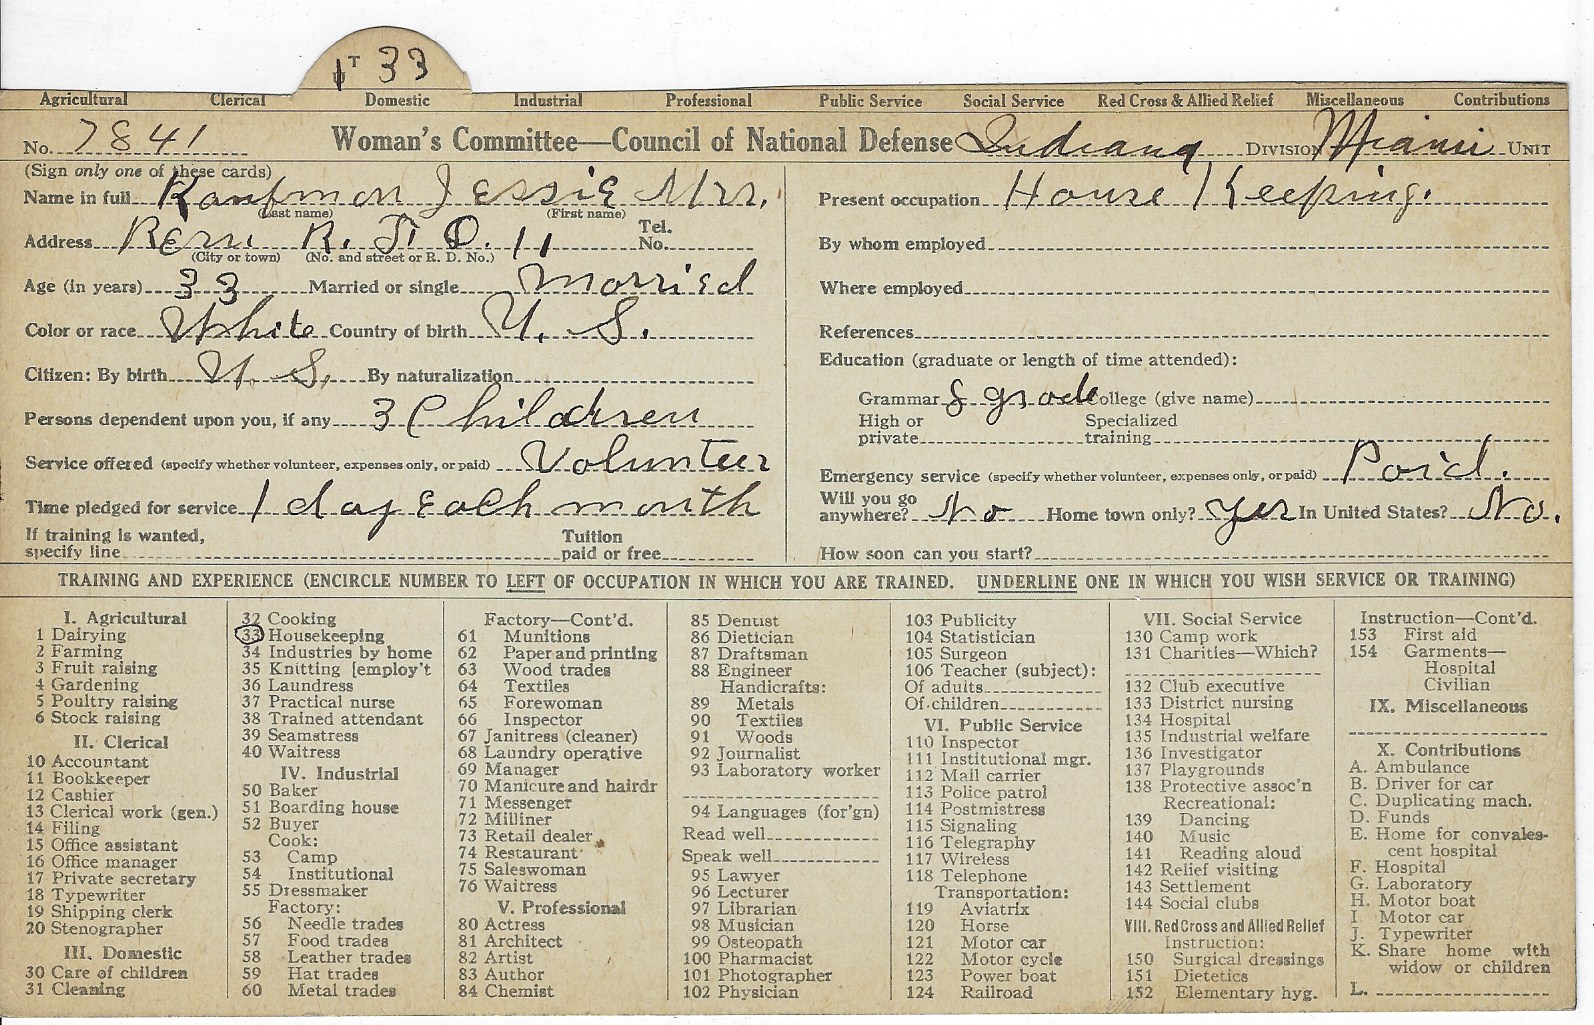 T 33
Agricultural Clerical Domestic Industrial Professional Public Service Social Service Red Cross & Allied Relief Miscellaneous Contributions
No. 7841 Woman's Committee—Council of National Defense Indiana DIVISION Miami UNIT
(Sign only one of these cards)
Name in full Kaufman Jessie Mrs.
(Last name) (First name)
Address Peru R. F. D. 11 Tel. No.
(City or town) (No. and street or R. D. No.)
Age (in years) 33 Married or single Married
Color or race White Country of birth U. S.
Citizen: By birth U. S. By naturalization
Persons dependent upon you, if any 3 Children
Service offered (specify whether volunteer, expenses only, or paid) Volunteer
Time pledged for service 1 day Each month
If training is wanted, specify line Tuition paid or free
Present occupation House Keeping.
By whom employed
Where employed
References
Education (graduate or length of time attended):
Grammar 8 grade College (give name)
High or private Specialized training
Emergency service (specify whether volunteer, expenses only, or paid) Paid.
Will you go anywhere? No Home town only? Yes In United States? No.
How soon can you start?
TRAINING AND EXPERIENCE (ENCIRCLE NUMBER TO LEFT OF OCCUPATION IN WHICH YOU ARE TRAINED. UNDERLINE ONE IN WHICH YOU WISH SERVICE OR TRAINING)
I. Agricultural
1 Dairying
2 Farming
3 Fruit raising
4 Gardening
5 Poultry raising
6 Stock raising
II. Clerical
10 Accountant
11 Bookkeeper
12 Cashier
13 Clerical work (gen.)
14 Filing
15 Office assistant
16 Office manager
17 Private secretary
18 Typewriter
19 Shipping clerk
20 Stenographer
III. Domestic
30 Care of children
31 Cleaning
32 Cooking
33 Housekeeping
34 Industries by home
35 Knitting [employ't
36 Laundress
37 Practical nurse
38 Trained attendant
39 Seamstress
40 Waitress
IV. Industrial
50 Baker
51 Boarding house
52 Buyer
Cook:
53 Camp
54 Institutional
55 Dressmaker
Factory:
56 Needle trades
57 Food trades
58 Leather trades
59 Hat trades
60 Metal trades
Factory—Cont'd.
61 Munitions
62 Paper and printing
63 Wood trades
64 Textiles
65 Forewoman
66 Inspector
67 Janitress (cleaner)
68 Laundry operative
69 Manager
70 Manicure and hairdr
71 Messenger
72 Milliner
73 Retail dealer
74 Restaurant
75 Saleswoman
76 Waitress
V. Professional
80 Actress
81 Architect
82 Artist
83 Author
84 Chemist
85 Dentist
86 Dietician
87 Draftsman
88 Engineer
Handicrafts:
89 Metals
90 Textiles
91 Woods
92 Journalist
93 Laboratory worker
94 Languages (for'gn)
Read well
Speak well
95 Lawyer
96 Lecturer
97 Librarian
98 Musician
99 Osteopath
100 Pharmacist
101 Photographer
102 Physician
103 Publicity
104 Statistician
105 Surgeon
106 Teacher (subject):
Of adults
Of children
VI. Public Service
110 Inspector
111 Institutional mgr.
112 Mail carrier
113 Police patrol
114 Postmistress
115 Signaling
116 Telegraphy
117 Wireless
118 Telephone
Transportation:
119 Aviatrix
120 Horse
121 Motor car
122 Motor cycle
123 Power boat
124 Railroad
VII. Social Service
130 Camp work
131 Charities—Which?
132 Club executive
133 District nursing
134 Hospital
135 Industrial welfare
136 Investigator
137 Playgrounds
138 Protective assoc'n
Recreational:
139 Dancing
140 Music
141 Reading aloud
142 Relief visiting
143 Settlement
144 Social clubs
VIII. Red Cross and Allied Relief
Instruction:
150 Surgical dressings
151 Dietetics
152 Elementary hyg.
Instruction—Cont'd.
153 First aid
154 Garments—
Hospital
Civilian
IX. Miscellaneous
X. Contributions
A. Ambulance
B. Driver for car
C. Duplicating mach.
D. Funds
E. Home for convales-
cent hospital
F. Hospital
G. Laboratory
H. Motor boat
I. Motor car
J. Typewriter
K. Share home with
widow or children
L.